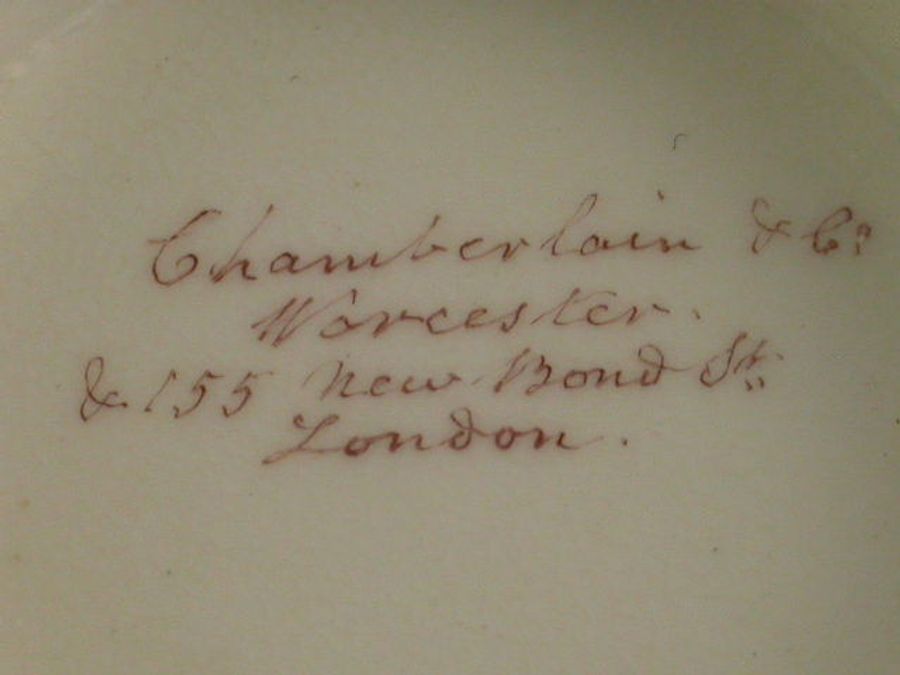 Chamberlain & Co
Worcester.
& 155 New Bond St.
London.